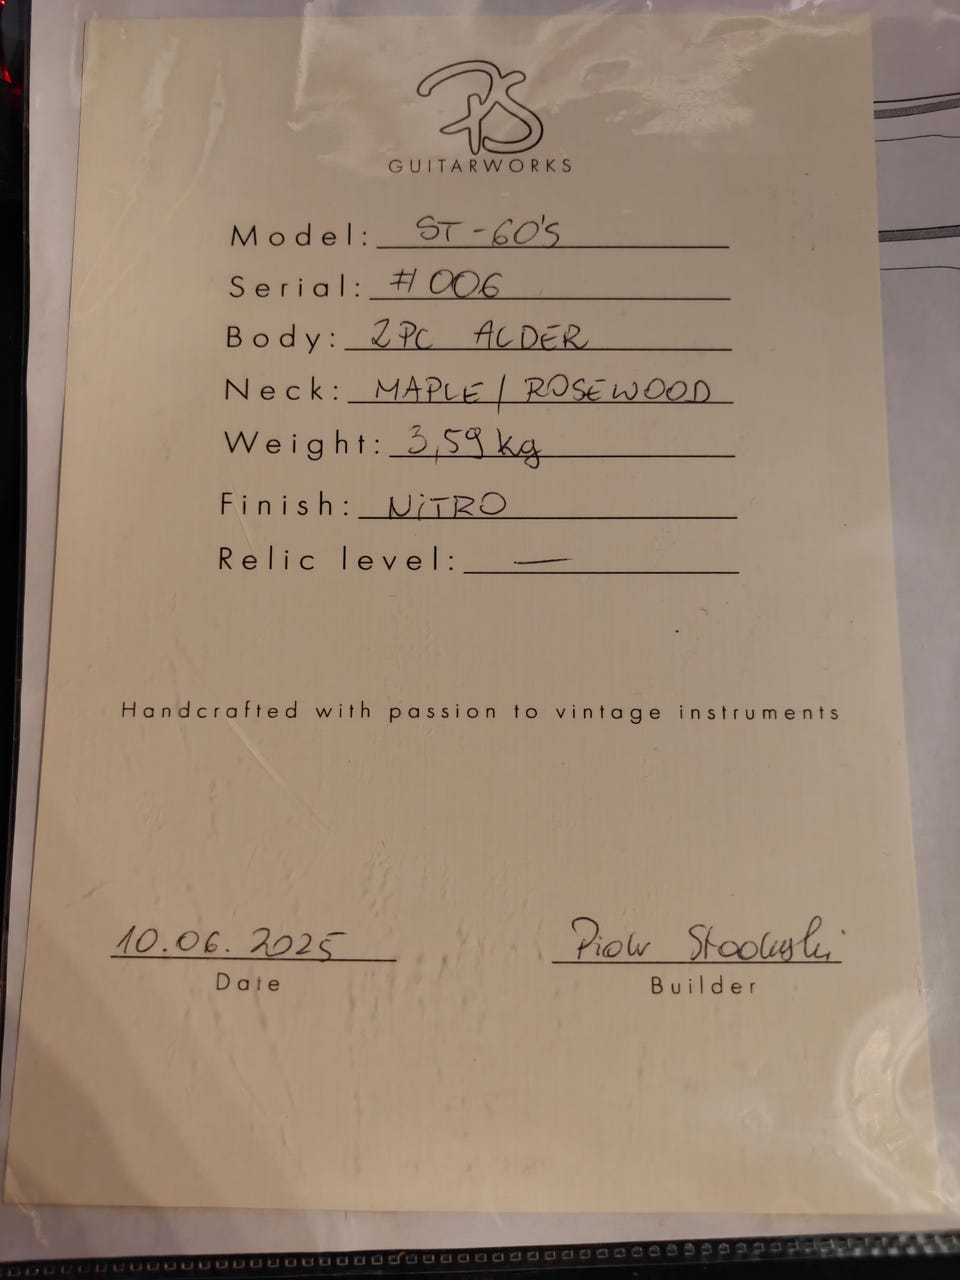 PS
GUITARWORKS
Model: ST-60'S
Serial: #006
Body: 2PC ALDER
Neck: MAPLE / ROSEWOOD
Weight: 3,59 kg
Finish: NiTRO
Relic level: —
Handcrafted with passion to vintage instruments
10.06.2025 Piotr
Date Builder